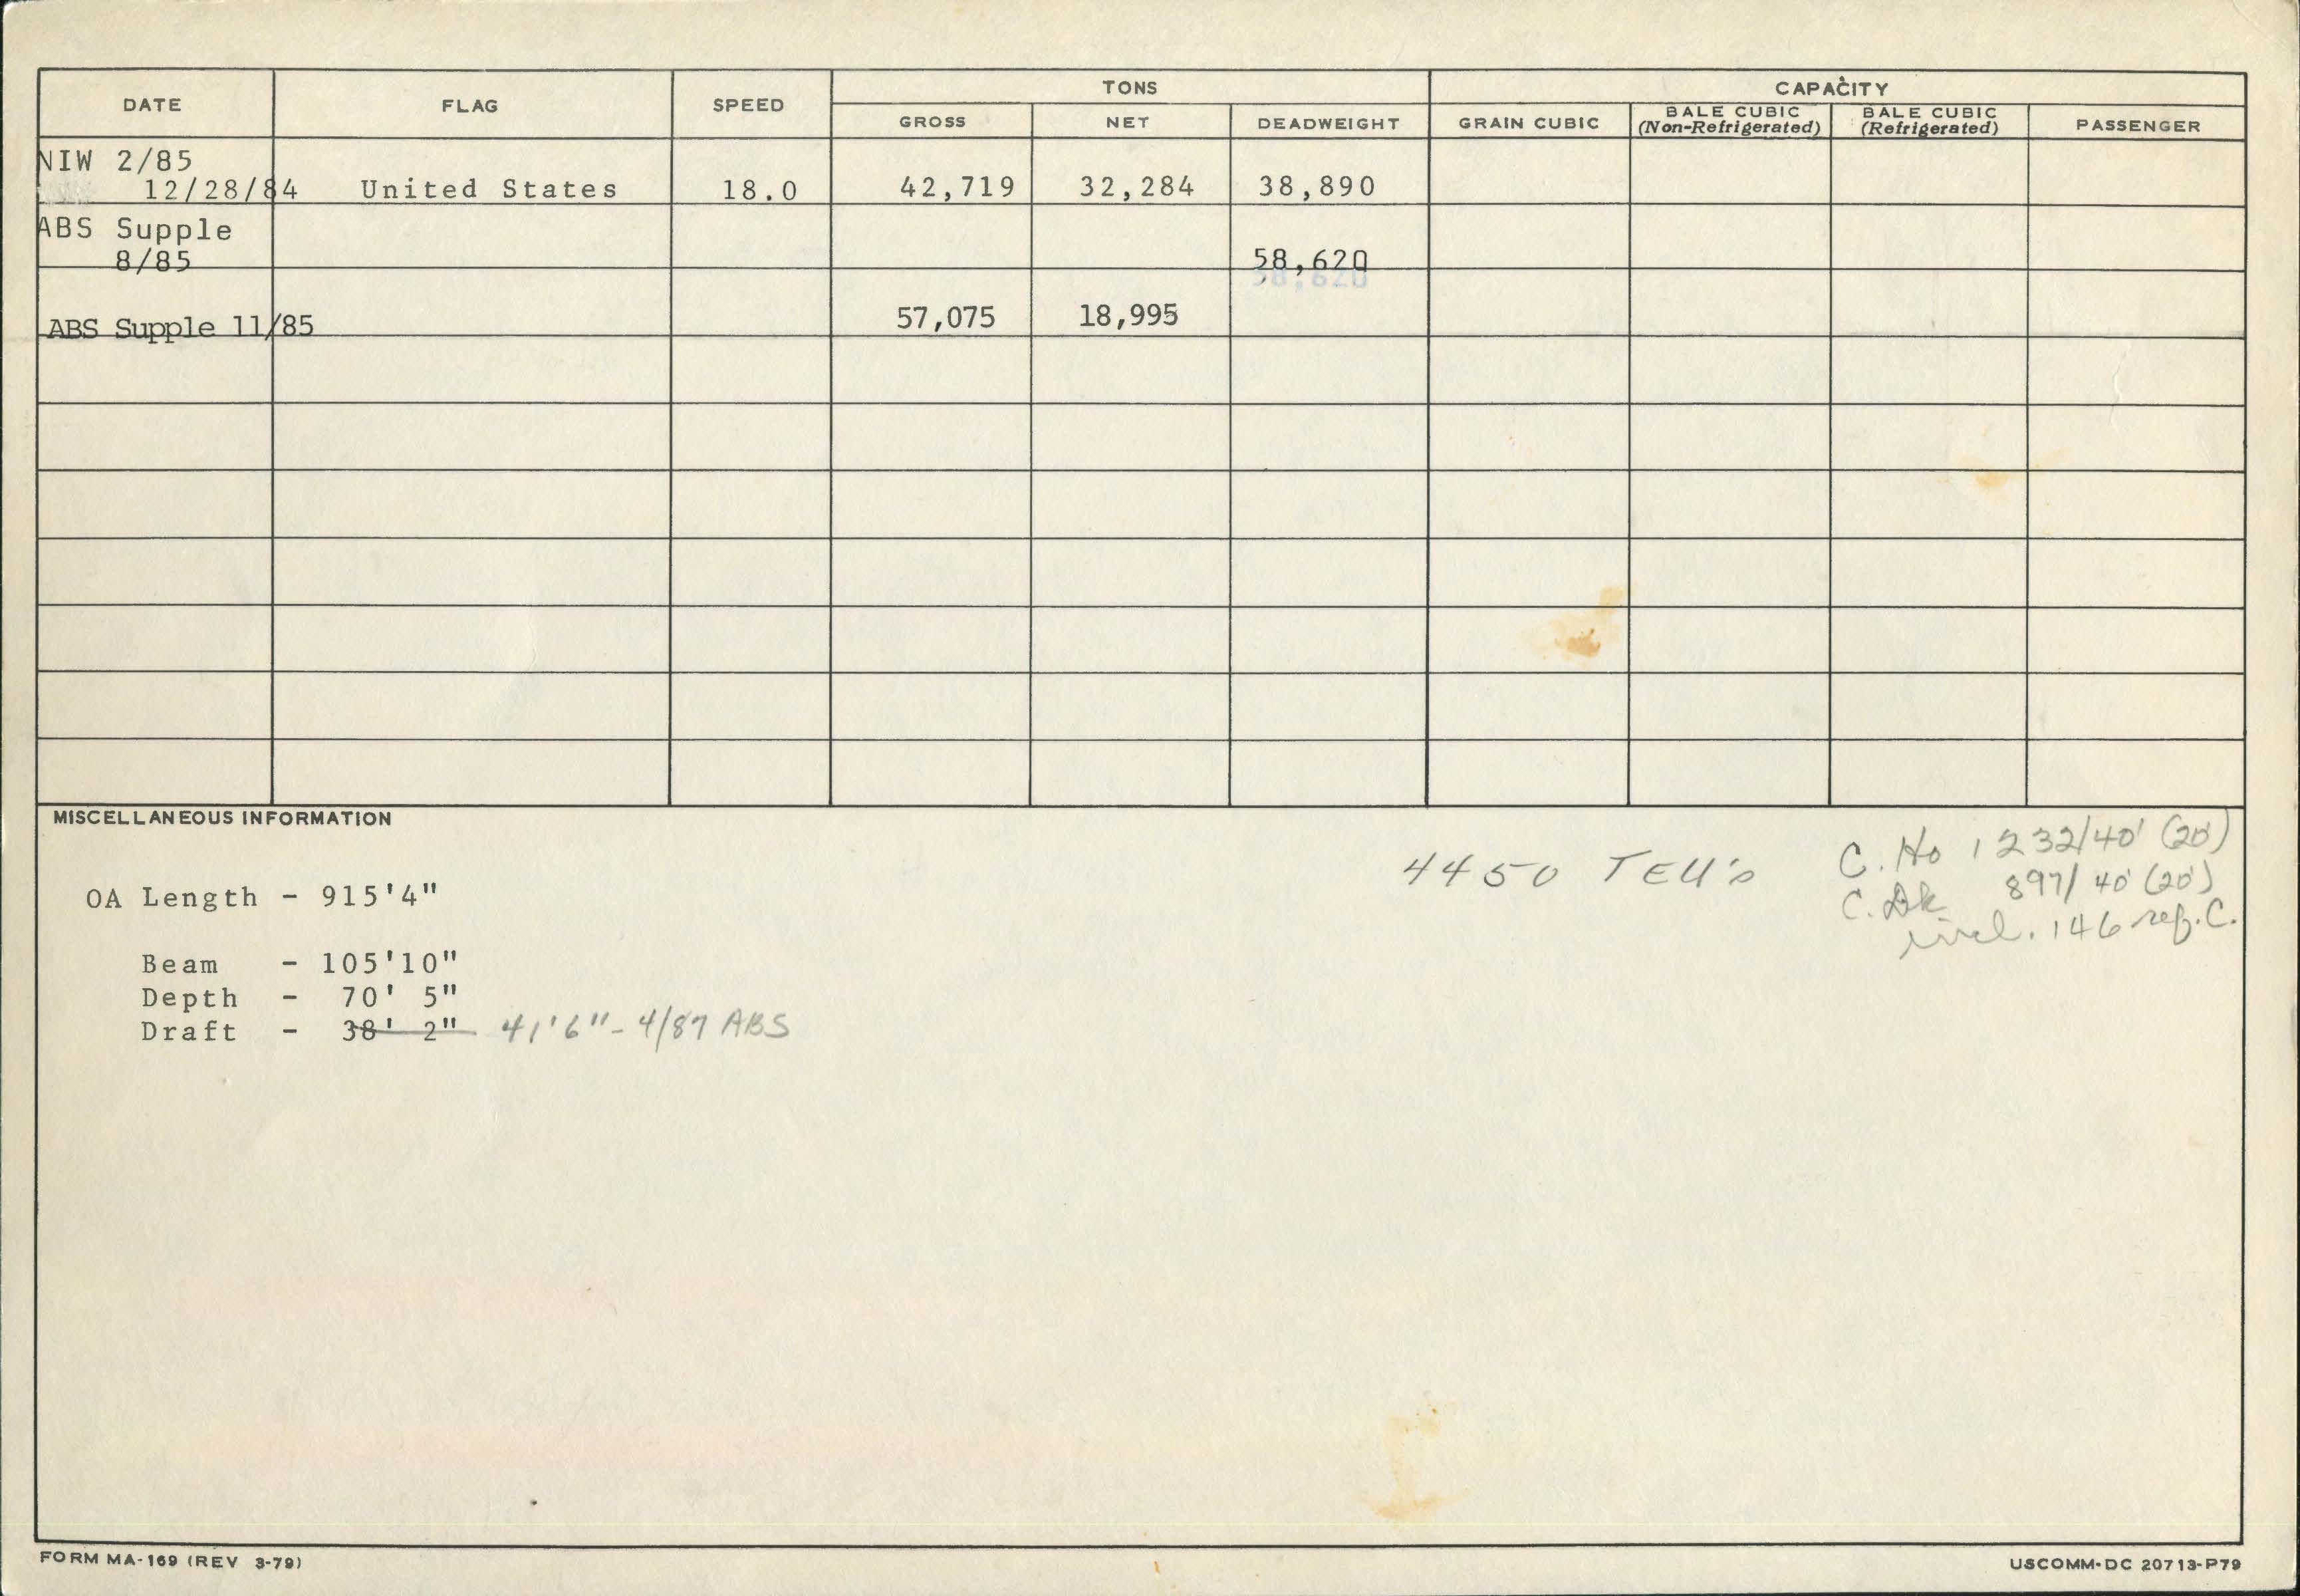 TONS CAPACITY
DATE FLAG SPEED GROSS NET DEADWEIGHT GRAIN CUBIC BALE CUBIC (Non-Refrigerated) BALE CUBIC (Refrigerated) PASSENGER
NIW 2/85
12/28/84 United States 18.0 42,719 32,284 38,890
ABS Supple
8/85 58,620
58,620
ABS Supple 11/85 57,075 18,995
MISCELLANEOUS INFORMATION
4450 TEU's
C. Ho 1232/40' (20')
C. Dk 897/40' (20')
incl. 146 ref. C.
OA Length - 915'4"
Beam - 105'10"
Depth - 70' 5"
Draft - 38' 2" 41'6" - 4/87 ABS
FORM MA-169 (REV 3-79) USCOMM-DC 20713-P79